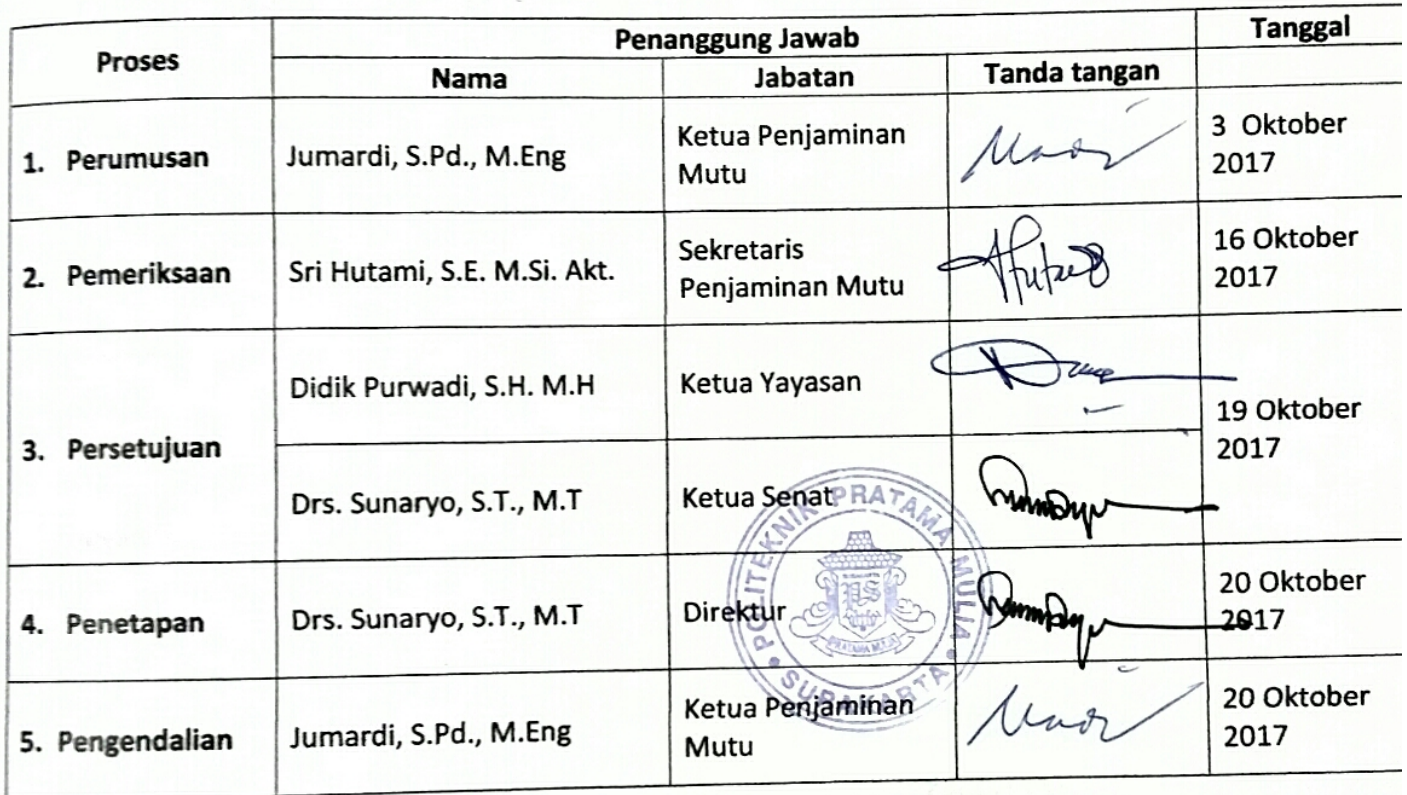 Proses
Penanggung Jawab
Tanggal
Nama
Jabatan
Tanda tangan
1. Perumusan
Jumardi, S.Pd., M.Eng
Ketua Penjaminan
Mutu
3 Oktober
2017
2. Pemeriksaan
Sri Hutami, S.E. M.Si. Akt.
Sekretaris
Penjaminan Mutu
16 Oktober
2017
3. Persetujuan
Didik Purwadi, S.H. M.H
Ketua Yayasan
19 Oktober
2017
Drs. Sunaryo, S.T., M.T
Ketua Senat
4. Penetapan
Drs. Sunaryo, S.T., M.T
Direktur
20 Oktober
2017
5. Pengendalian
Jumardi, S.Pd., M.Eng
Ketua Penjaminan
Mutu
20 Oktober
2017
POLITEKNIK PRATAMA MULIA
SURAKARTA
PRATAMA MULIA